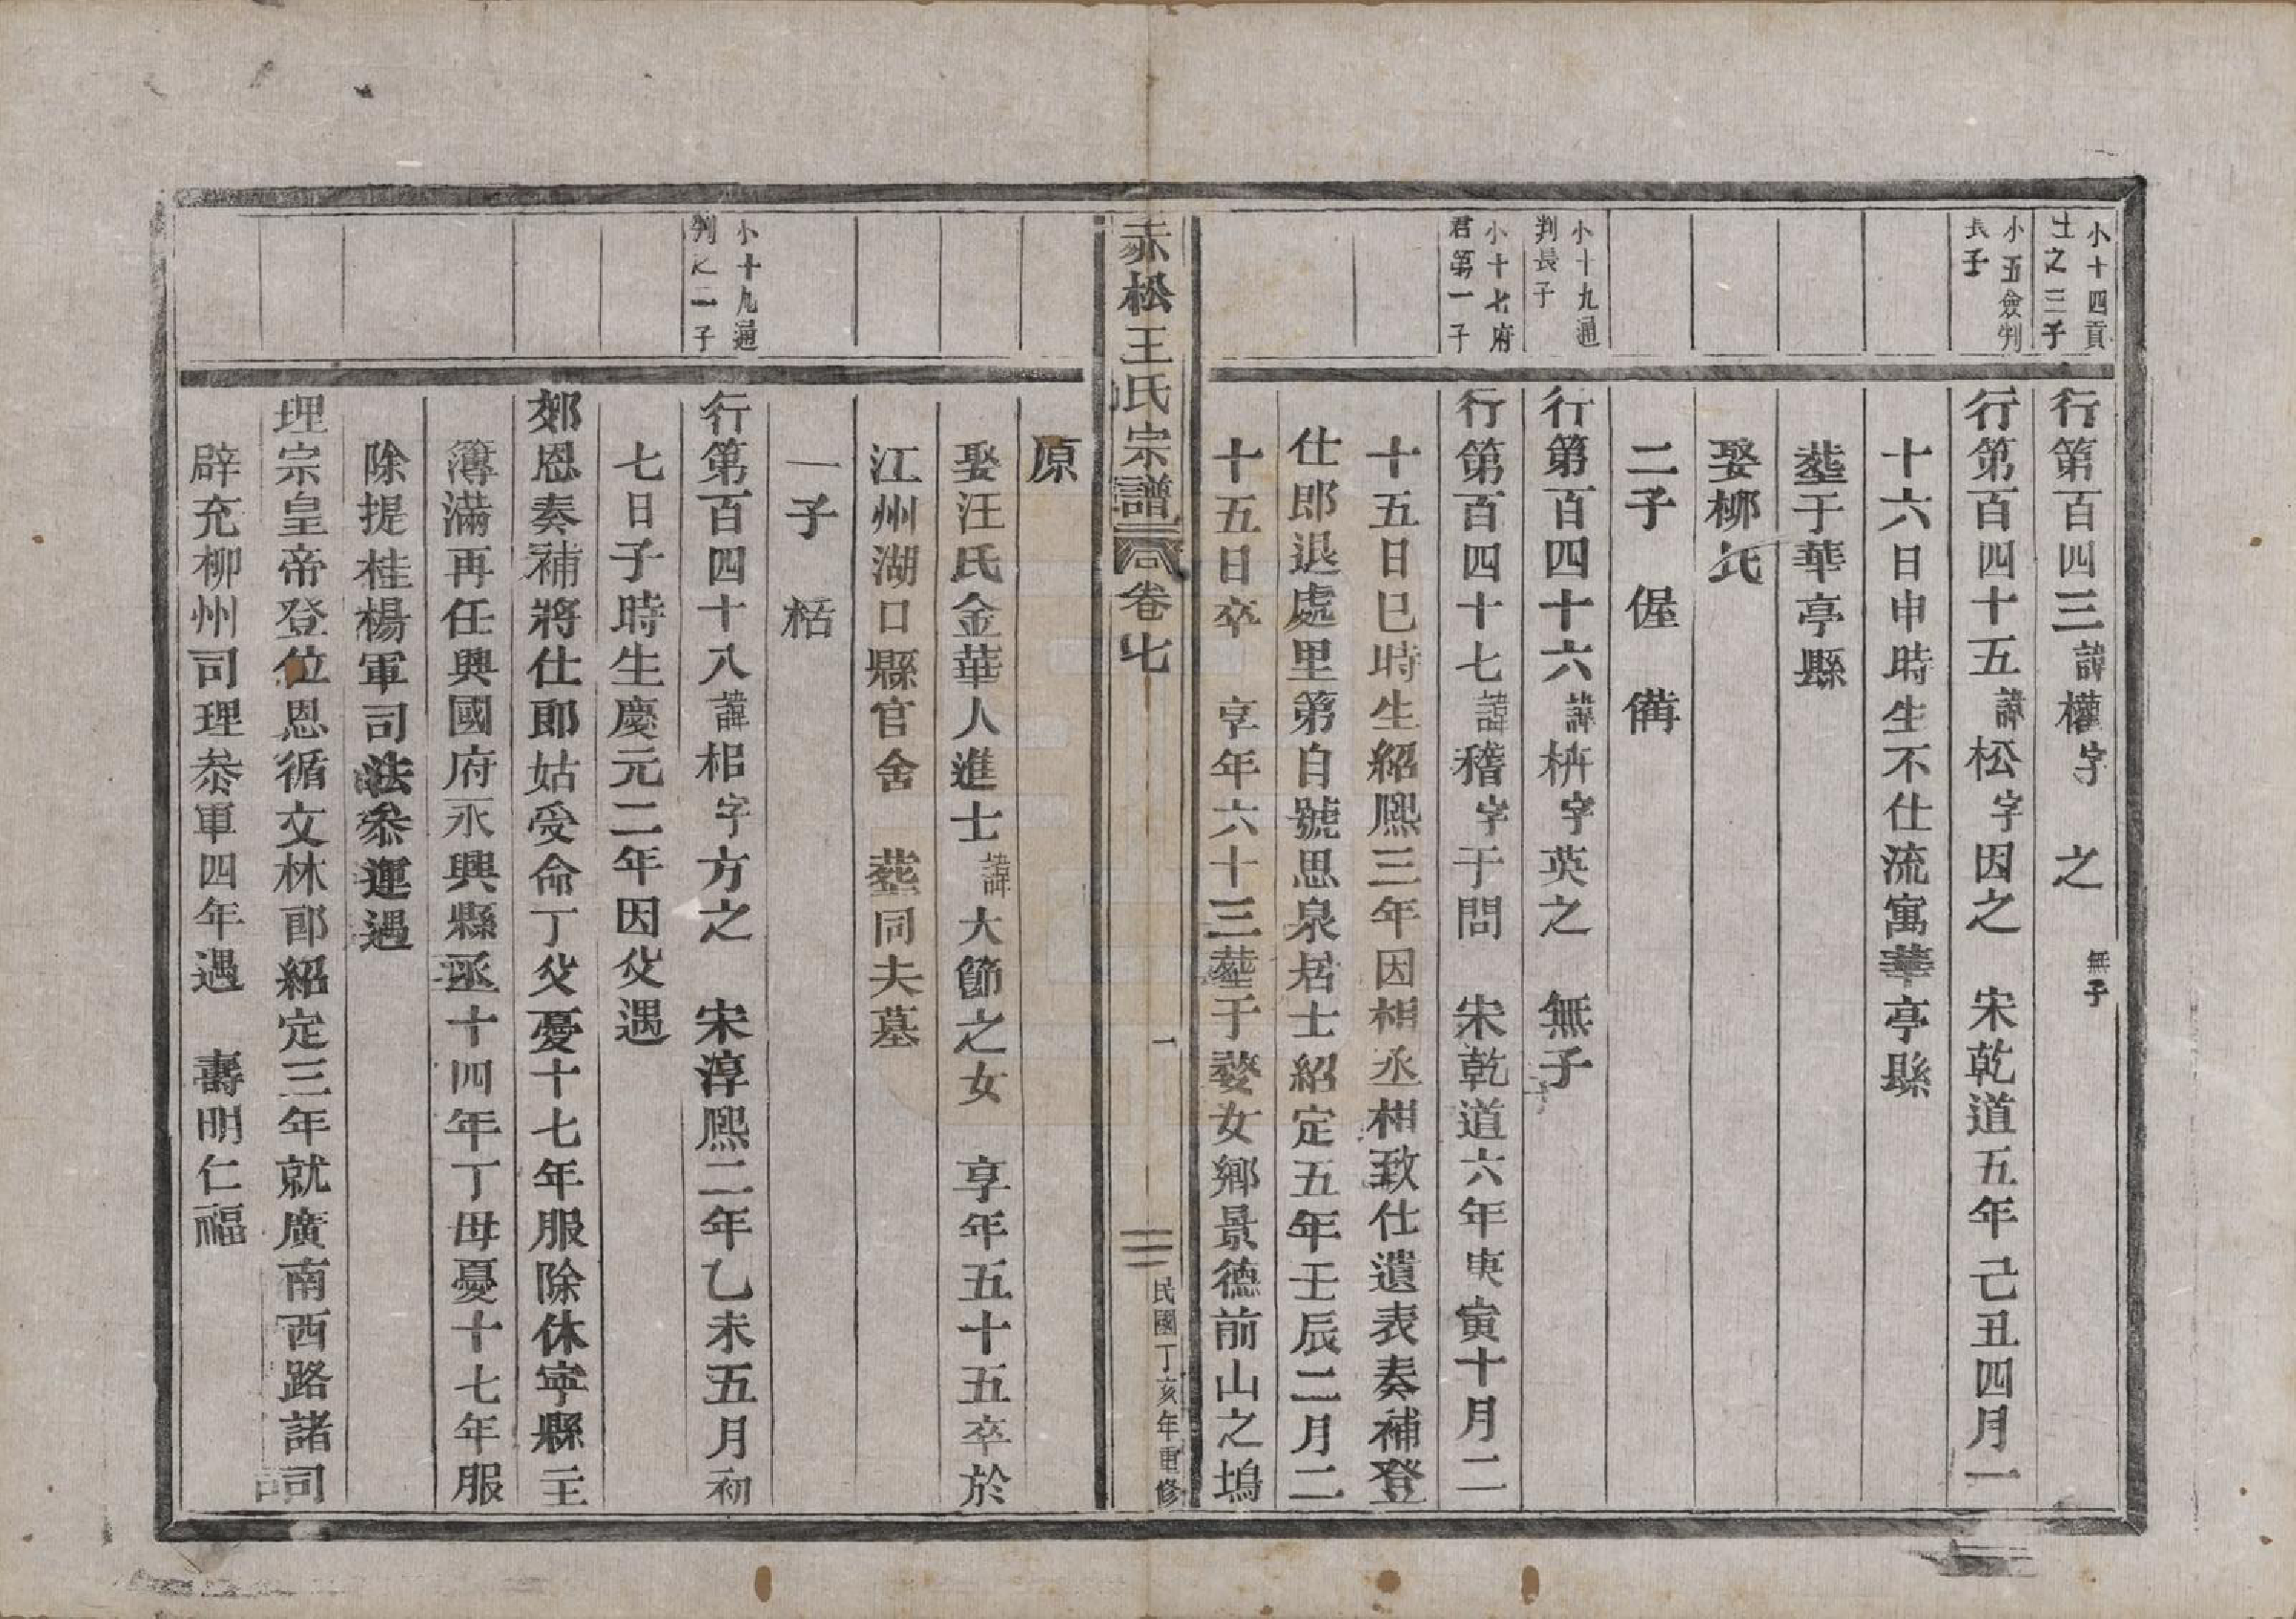 小十四貢
士之三子
行第百四三諱權字　之　無子
小五僉判
長子
行第百四十五諱松字因之　宋乾道五年己丑四月一
十六日申時生不仕流寓華亭縣
塟于華亭縣
娶柳氏
二子　偓　備
小十九通
判長子
行第百四十六諱枬字英之　無子
小十七府
君第一子
行第百四十七諱稽字于問　宋乾道六年庚寅十月二
十五日巳時生紹熙三年因相丞相致仕遺表奏補登
仕郎退處里第自號思泉居士紹定五年壬辰二月二
十五日卒　享年六十三塟于婺女鄉景德前山之塢
赤松王氏宗譜　卷七　一　民國丁亥年重修
原
娶汪氏金華人進士諱大節之女　享年五十五卒於
江州湖口縣官舍　塟同夫墓
一子　栝
小十九通
判之二子
行第百四十八諱梠字方之　宋淳熙二年乙未五月初
七日子時生慶元二年因父遇
郊恩奏補將仕郎姑受命丁父憂十七年服除休寧縣主
簿滿再任興國府永興縣丞十四年丁母憂十七年服
除提桂楊軍司法叅運遇
理宗皇帝登位恩循文林郎紹定三年就廣南西路諸司
辟充柳州司理叅軍四年遇　壽明仁福